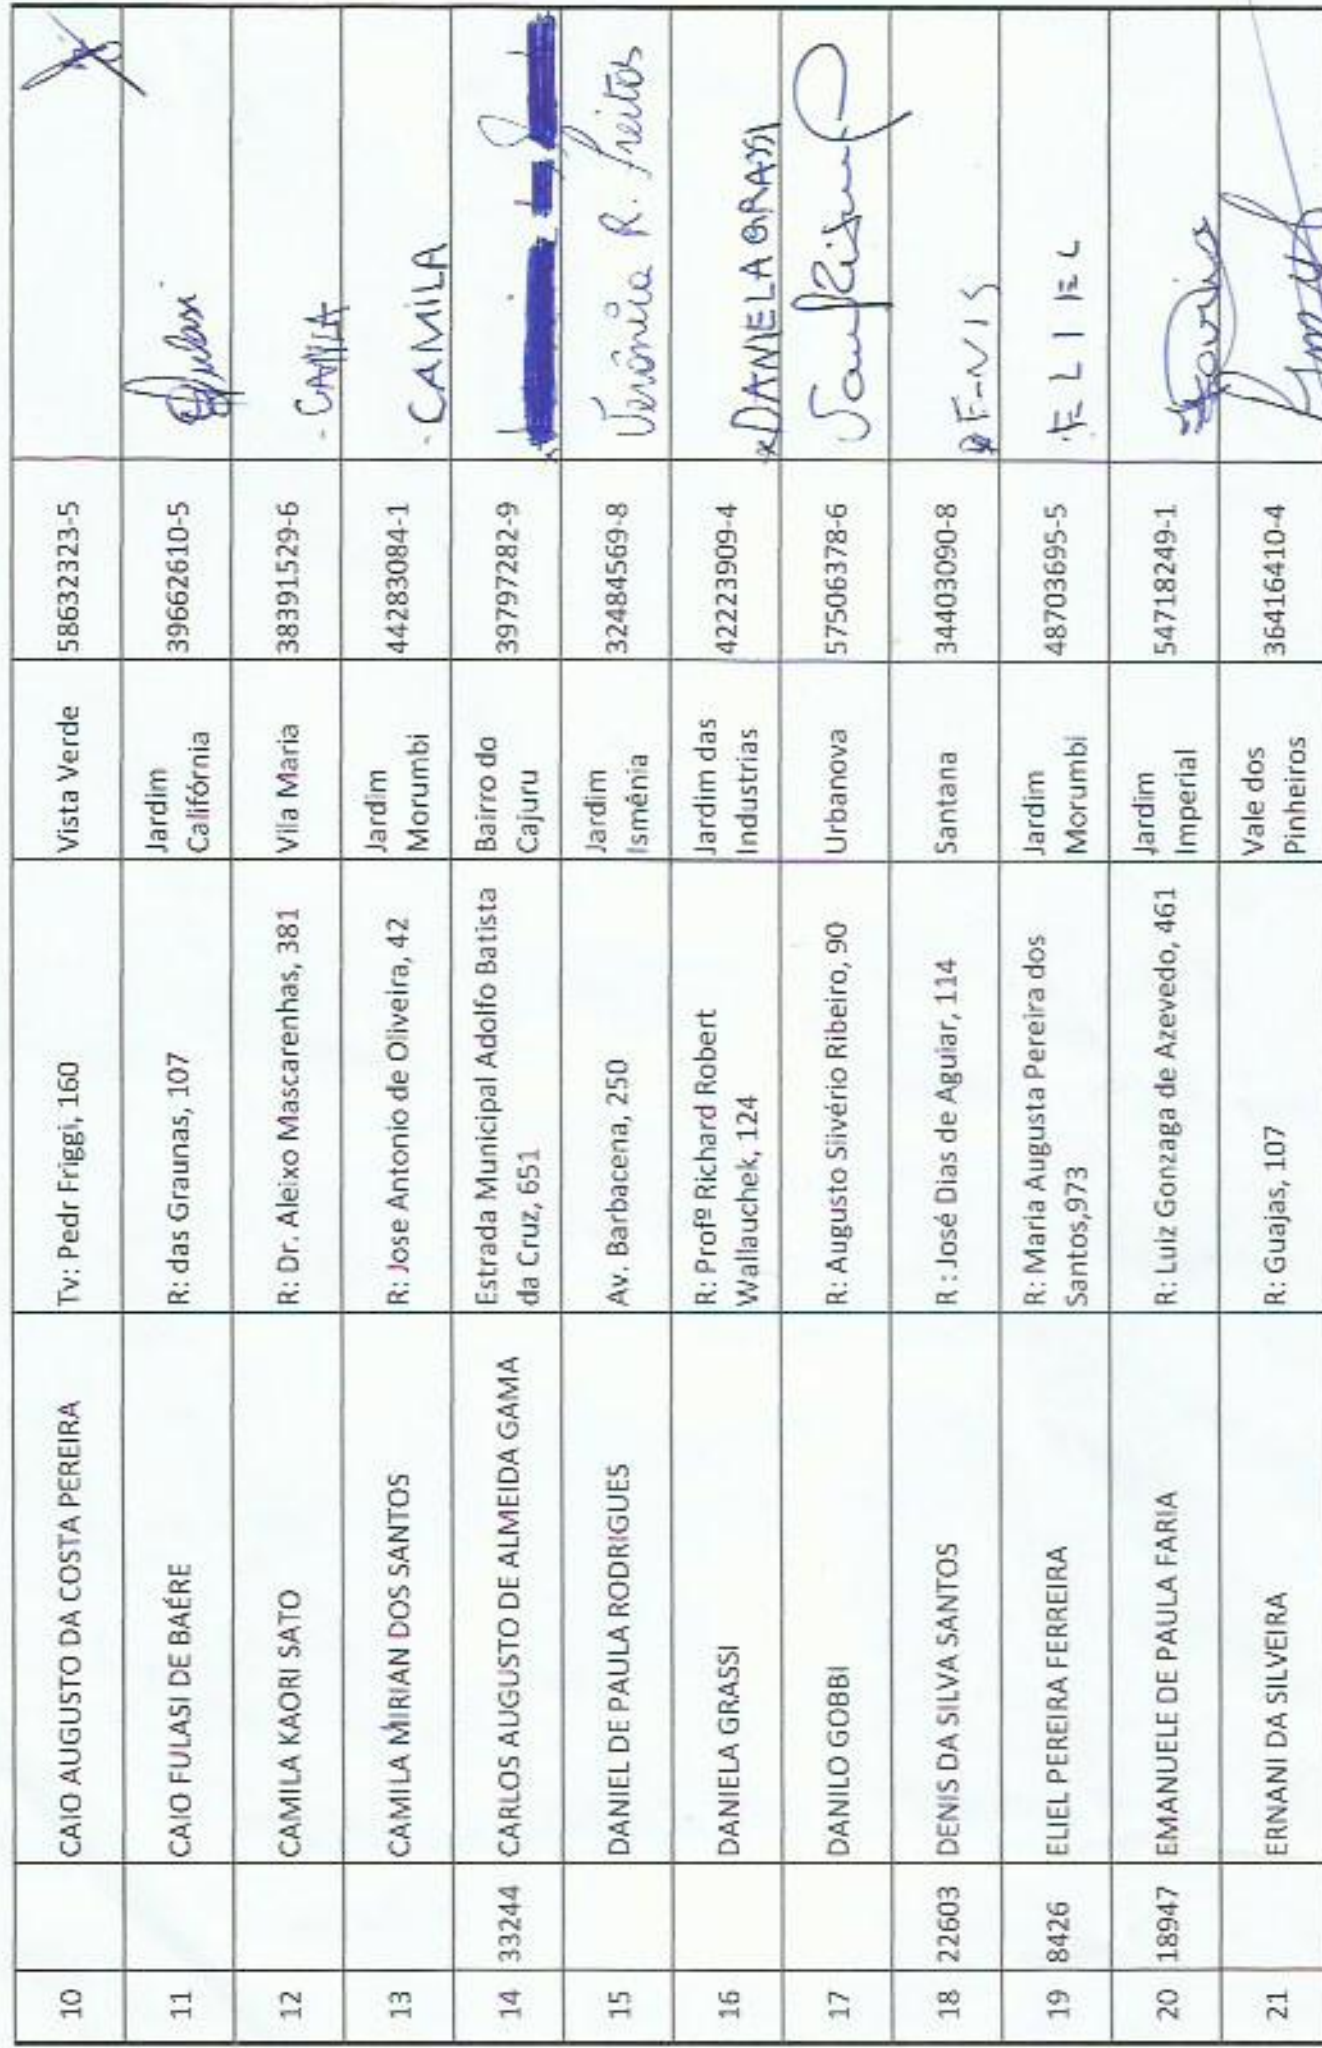 10 CAIO AUGUSTO DA COSTA PEREIRA Tv: Pedr Friggi, 160 Vista Verde 58632323-5
11 CAIO FULASI DE BAÉRE R: das Graunas, 107 Jardim Califórnia 39662610-5 Fulasi
12 CAMILA KAORI SATO R: Dr. Aleixo Mascarenhas, 381 Vila Maria 38391529-6
13 CAMILA MIRIAN DOS SANTOS R: Jose Antonio de Oliveira, 42 Jardim Morumbi 44283084-1 CAMILA
14 33244 CARLOS AUGUSTO DE ALMEIDA GAMA Estrada Municipal Adolfo Batista da Cruz, 651 Bairro do Cajuru 39797282-9
15 DANIEL DE PAULA RODRIGUES Av. Barbacena, 250 Jardim Ismênia 32484569-8 Verônica R. Freitas
16 DANIELA GRASSI R: Profº Richard Robert Wallauchek, 124 Jardim das Industrias 42223909-4 DANIELA GRASSI
17 DANILO GOBBI R: Augusto Silvério Ribeiro, 90 Urbanova 57506378-6
18 22603 DENIS DA SILVA SANTOS R : José Dias de Aguiar, 114 Santana 34403090-8 DENIS
19 8426 ELIEL PEREIRA FERREIRA R: Maria Augusta Pereira dos Santos,973 Jardim Morumbi 48703695-5 ELIEL
20 18947 EMANUELE DE PAULA FARIA R: Luiz Gonzaga de Azevedo, 461 Jardim Imperial 54718249-1 Faria
21 ERNANI DA SILVEIRA R: Guajas, 107 Vale dos Pinheiros 36416410-4